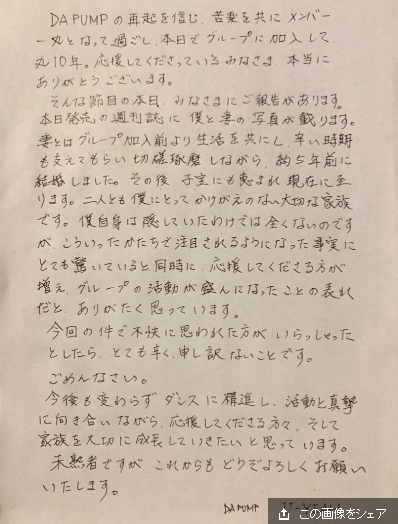 DA PUMP の再起を信じ、苦楽を共に メンバー
一丸となって過ごし、本日で グループに 加入して
丸10年。応援してくださっている みなさま、本当に
ありがとうございます。
そんな節目の本日、みなさまにご報告があります。
本日発売の週刊誌に 僕と妻の写真が載ります。
妻とはグループ加入前より生活を共にし、辛い時期
も支えてもらい 切磋琢磨しながら、約5年前に
結婚しました。その後 子宝にも恵まれ 現在に至
ります。二人とも僕にとって かけがえのない大切な家族
です。僕自身は隠していたわけでは全くないのです
が、こういったかたちで注目されるようになった事実に
とても驚いていると同時に、応援してくださる方が
増え、グループの活動が盛んになったことの表れ
だと、ありがたく思っています。
今回の件で不快に思われた方が いらっしゃった
としたら、とても辛く、申し訳ないことです。
ごめんなさい。
今後も変わらず ダンスに 精進し、活動と真摯
に向き合いながら、応援してくださる方々、そして
家族を大切に成長していきたいと思っています。
未熟者ですが、これからも どうぞよろしくお願い
いたします。
DA PUMP
この画像をシェア